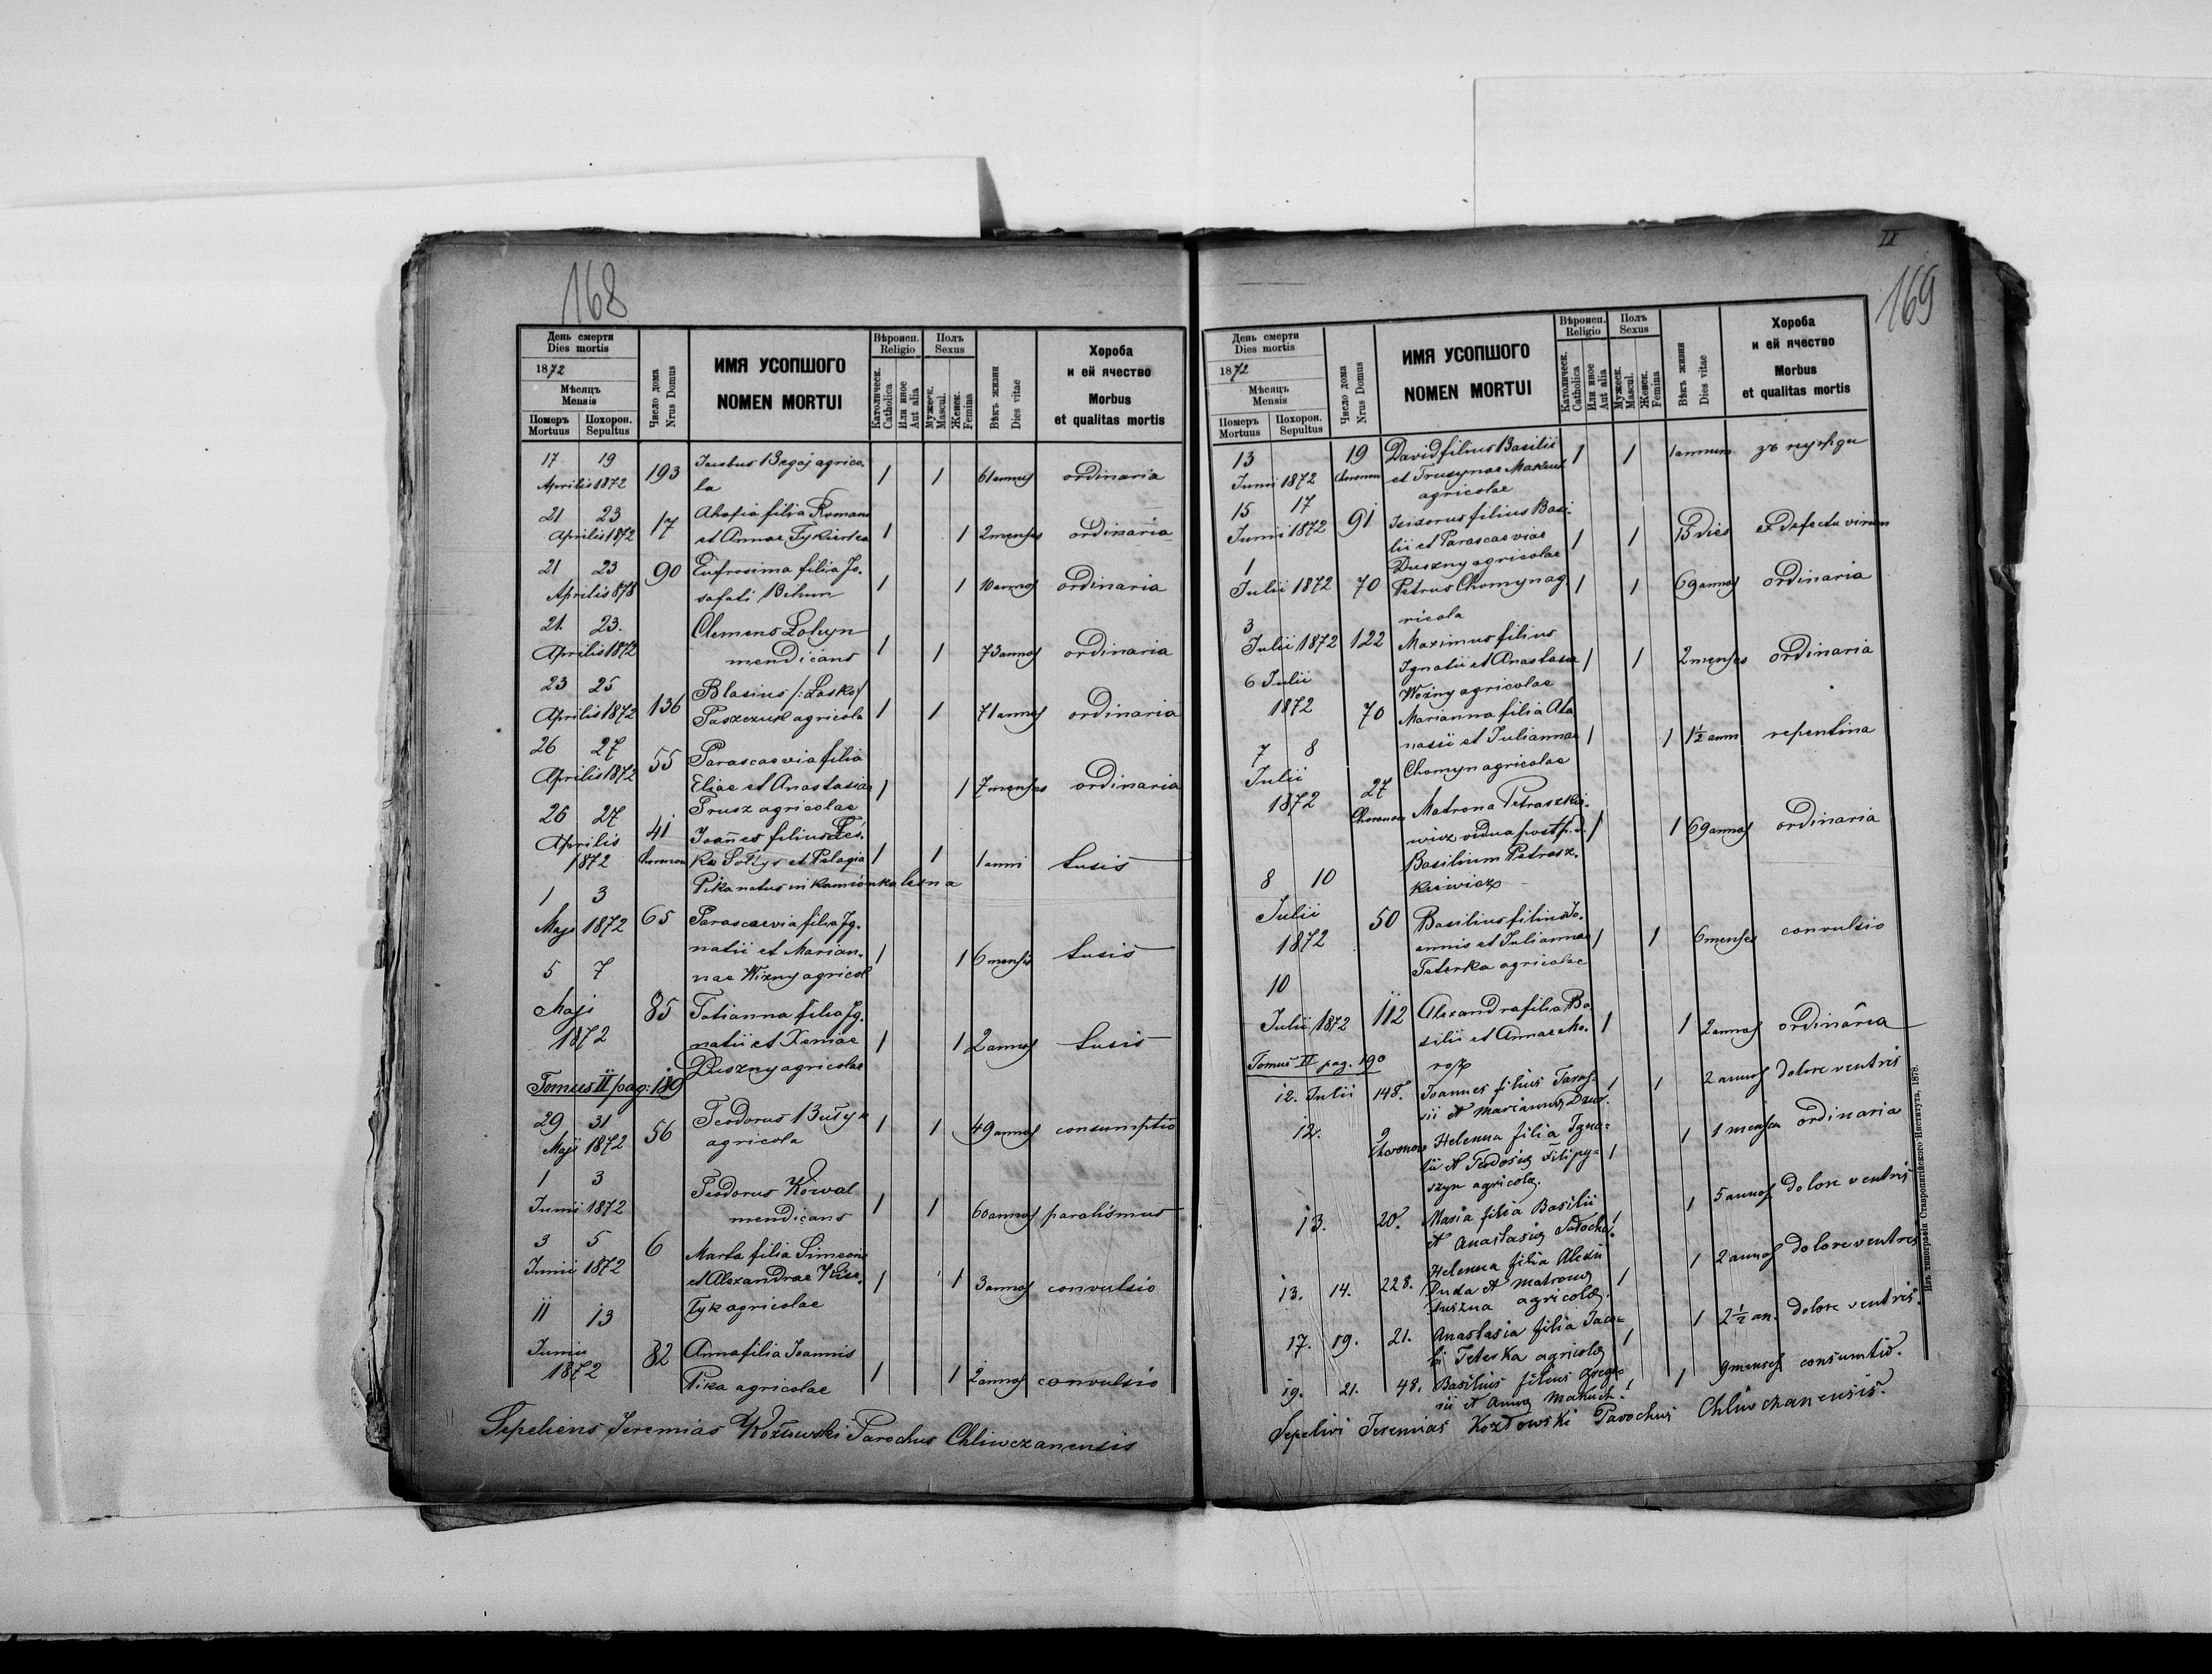 168
День смерти
Dies mortis
1872
Мѣсяцъ
Mensis
Померъ Похорон.
Mortuus Sepultus
Число дома
Nrus Domus
ИМЯ УСОПШОГО
NOMEN MORTUI
Вѣроисп.
Religio
Католическ.
Catholica
Или иное
Aut alia
Полъ
Sexus
Мужеск.
Mascul.
Женск.
Femina
Вѣкъ жизни
Dies vitae
Хороба
и ей ячество
Morbus
et qualitas mortis
17 19
Aprilis 1872 193 agrico-
la 1 1 61 annos ordinaria
21 23
Aprilis 1872 17 Ahafia filia Romani
et Annae 1 1 2 menses ordinaria
21 23
Aprilis 878 90 Eufrosima filia Jo-
safati Bihun 1 1 10 annos ordinaria
21. 23.
Aprilis 1872 Clemens
mendicans 1 1 73 annos ordinaria
23 25
Aprilis 1872 136 Blasius /: Łasko/
Paszczuk agricola 1 1 71 annos ordinaria
26 27
Aprilis 1872 55 Parascaevia filia
Eliae et Anastasiae 1 1 7 menses ordinaria
Prusz agricolae
26 27
Aprilis
1872 41 Joañes filius Leś-
ka Sołtys et Pelagia 1 1 1 anni tusis
Pika natus in Kamionka lesna
1 3
Maji 1872 65 Parascaevia filia Jg-
natii et Marian-
nae agricol 1 1 6 mensis tusis
5 7
Maji
1872 85 Tatianna filia Jg-
natii et Xeniae 1 1 2 annos tusis
Duszny agricolae
Tomus II pag: 189
29 31
Maji 1872 56 Teodorus Bułyk
agricola 1 1 49 annos consumptio
1 3
Junii 1872 Teodorus Kowal
mendicans 1 1 60 annos paralismus
3 5
Junii 1872 6 Marta filia Simeonis
et Alexandrae Kise-
łyk agricolae 1 1 3 annos convulsio
11 13
Junii
1872 82 Anna filia Joannis
Pika agricolae 1 1 2 annos convulsio
Sepeliens Jeremias Kozłowski Parochus Chliwczanensis
II
169
День смерти
Dies mortis
1872
Мѣсяцъ
Mensis
Померъ Похорон.
Mortuus Sepultus
Число дома
Nrus Domus
ИМЯ УСОПШОГО
NOMEN MORTUI
Вѣроисп.
Religio
Католическ.
Catholica
Или иное
Aut alia
Полъ
Sexus
Мужеск.
Mascul.
Женск.
Femina
Вѣкъ жизни
Dies vitae
Хороба
и ей ячество
Morbus
et qualitas mortis
13
Junii 1872 19 David filius Basilii
et
agricolae 1 1 1 annum зъ
15 17
Junii 1872 91 Isidorus filius Basi-
lii et Parascaeviae
Duszny agricolae 1 1 15 dies ex defectu virium
1
Julii 1872 70 Petrus Chomyn ag
ricola 1 1 69 annos ordinaria
3
Julii 1872 122 Maximus filius
Ignatii et Anastasia
Woźny agricolae 1 1 2 menses ordinaria
6 Julii
1872 70 Marianna filia Ata
nasii et Julianna
Chomyn agricolae 1 1 1½ anni repentina
7 8
Julii
1872 27 Matrona Petraszkie-
wicz vidua post p. d.
Basilium Petrasz-
kiewicz 1 1 69 annos ordinaria
8 10
Julii
1872 50 Basilius filius Jo-
annis et Juliannae
Teterka agricolae 1 1 6 menses convulsio
10
Julii 1872 112 Alexandra filia Ba
silii et Annae Mo-
roz 1 1 2 annos ordinaria
Tomus II pag. 190
12. Julii 148. Joannes filius Taras-
ii et Marianna 1 1 2 annos dolore ventris
12. 9 Helenna filia Igna-
tii et Teodosia Filipy-
szyn agricolae. 1 1 1 mensem ordinaria
13. 20. Maria filia Basilii
et Anastasia 1 1 5 annos dolore ventris
13. 14. 228. Helenna filia Alexii
Duda et Matrona
agricolae. 1 1 2 annos dolore ventris
17. 19. 21. Anastasia filia Jaco-
bi Teterka agricolae 1 1 2½ an. dolore ventris.
19. 21. 48. Basilius filius Grego-
rii et Anna Makuch. 1 1 9 menses consumtio.
Sepelivi Jeremias Kozłowski Parochus Chliwczanensis.
Изъ типографіи Ставропигійского Института, 1878.